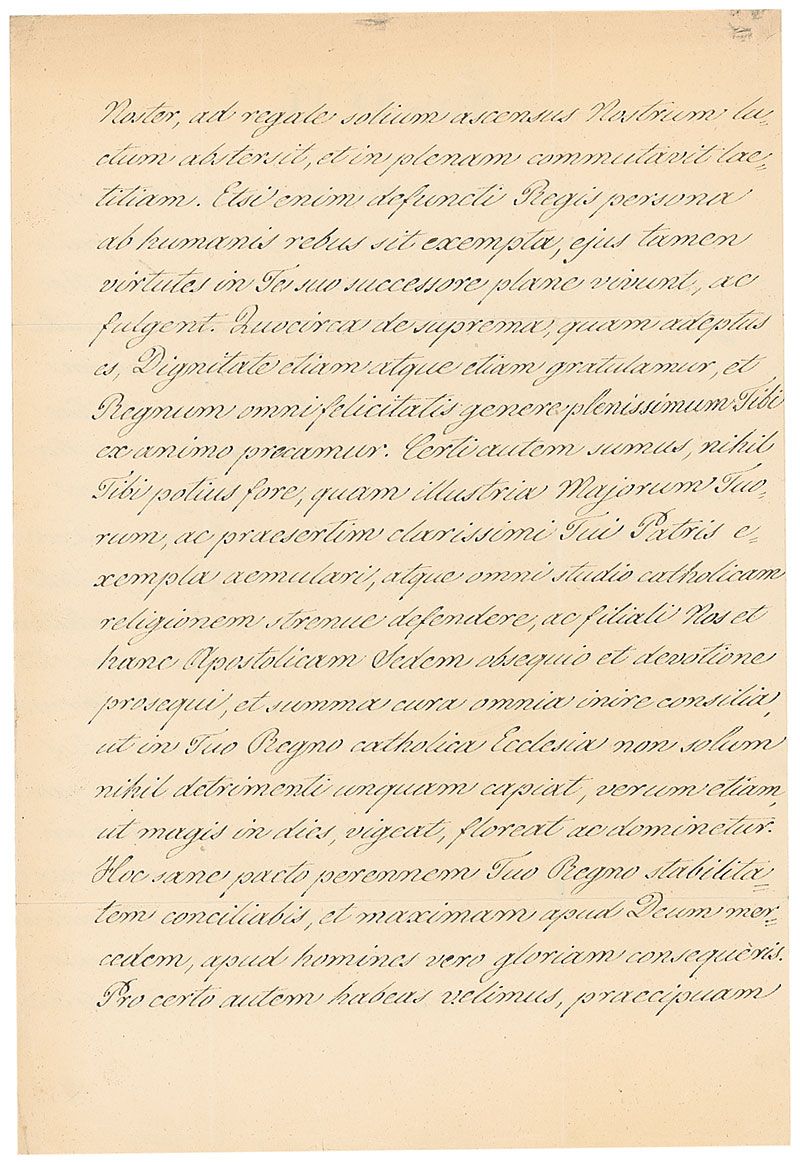 Noster, ad regale solium ascensus Nostrum lu=
ctum abstersit, et in plenam commutavit lae=
titiam. Etsi enim defuncti Regis persona
ab humanis rebus sit exempta, ejus tamen
virtutes in Te suo successore plane vivunt, ac
fulgent. Quocirca de suprema, quam adeptus
es, Dignitate etiam atque etiam gratulamur, et
Regnum omni felicitatis genere plenissimum Tibi
ex animo precamur. Certi autem sumus, nihil
Tibi potius fore, quam illustria Majorum Tuo=
rum, ac praesertim clarissimi Tui Patris e=
xempla aemulari, atque omni studio catholicam
religionem strenue defendere, ac filiali Nos et
hanc Apostolicam Sedem obsequio et devotione
prosequi, et summa cura omnia inire consilia,
ut in Tuo Regno catholica Ecclesia non solum
nihil detrimenti unquam capiat, verum etiam,
ut magis in dies, vigeat, floreat ac dominetur.
Hoc sane pacto perennem Tuo Regno stabilita=
tem conciliabis, et maximam apud Deum mer=
cedem, apud homines vero gloriam consequèris.
Pro certo autem habeas velimus, praecipuam